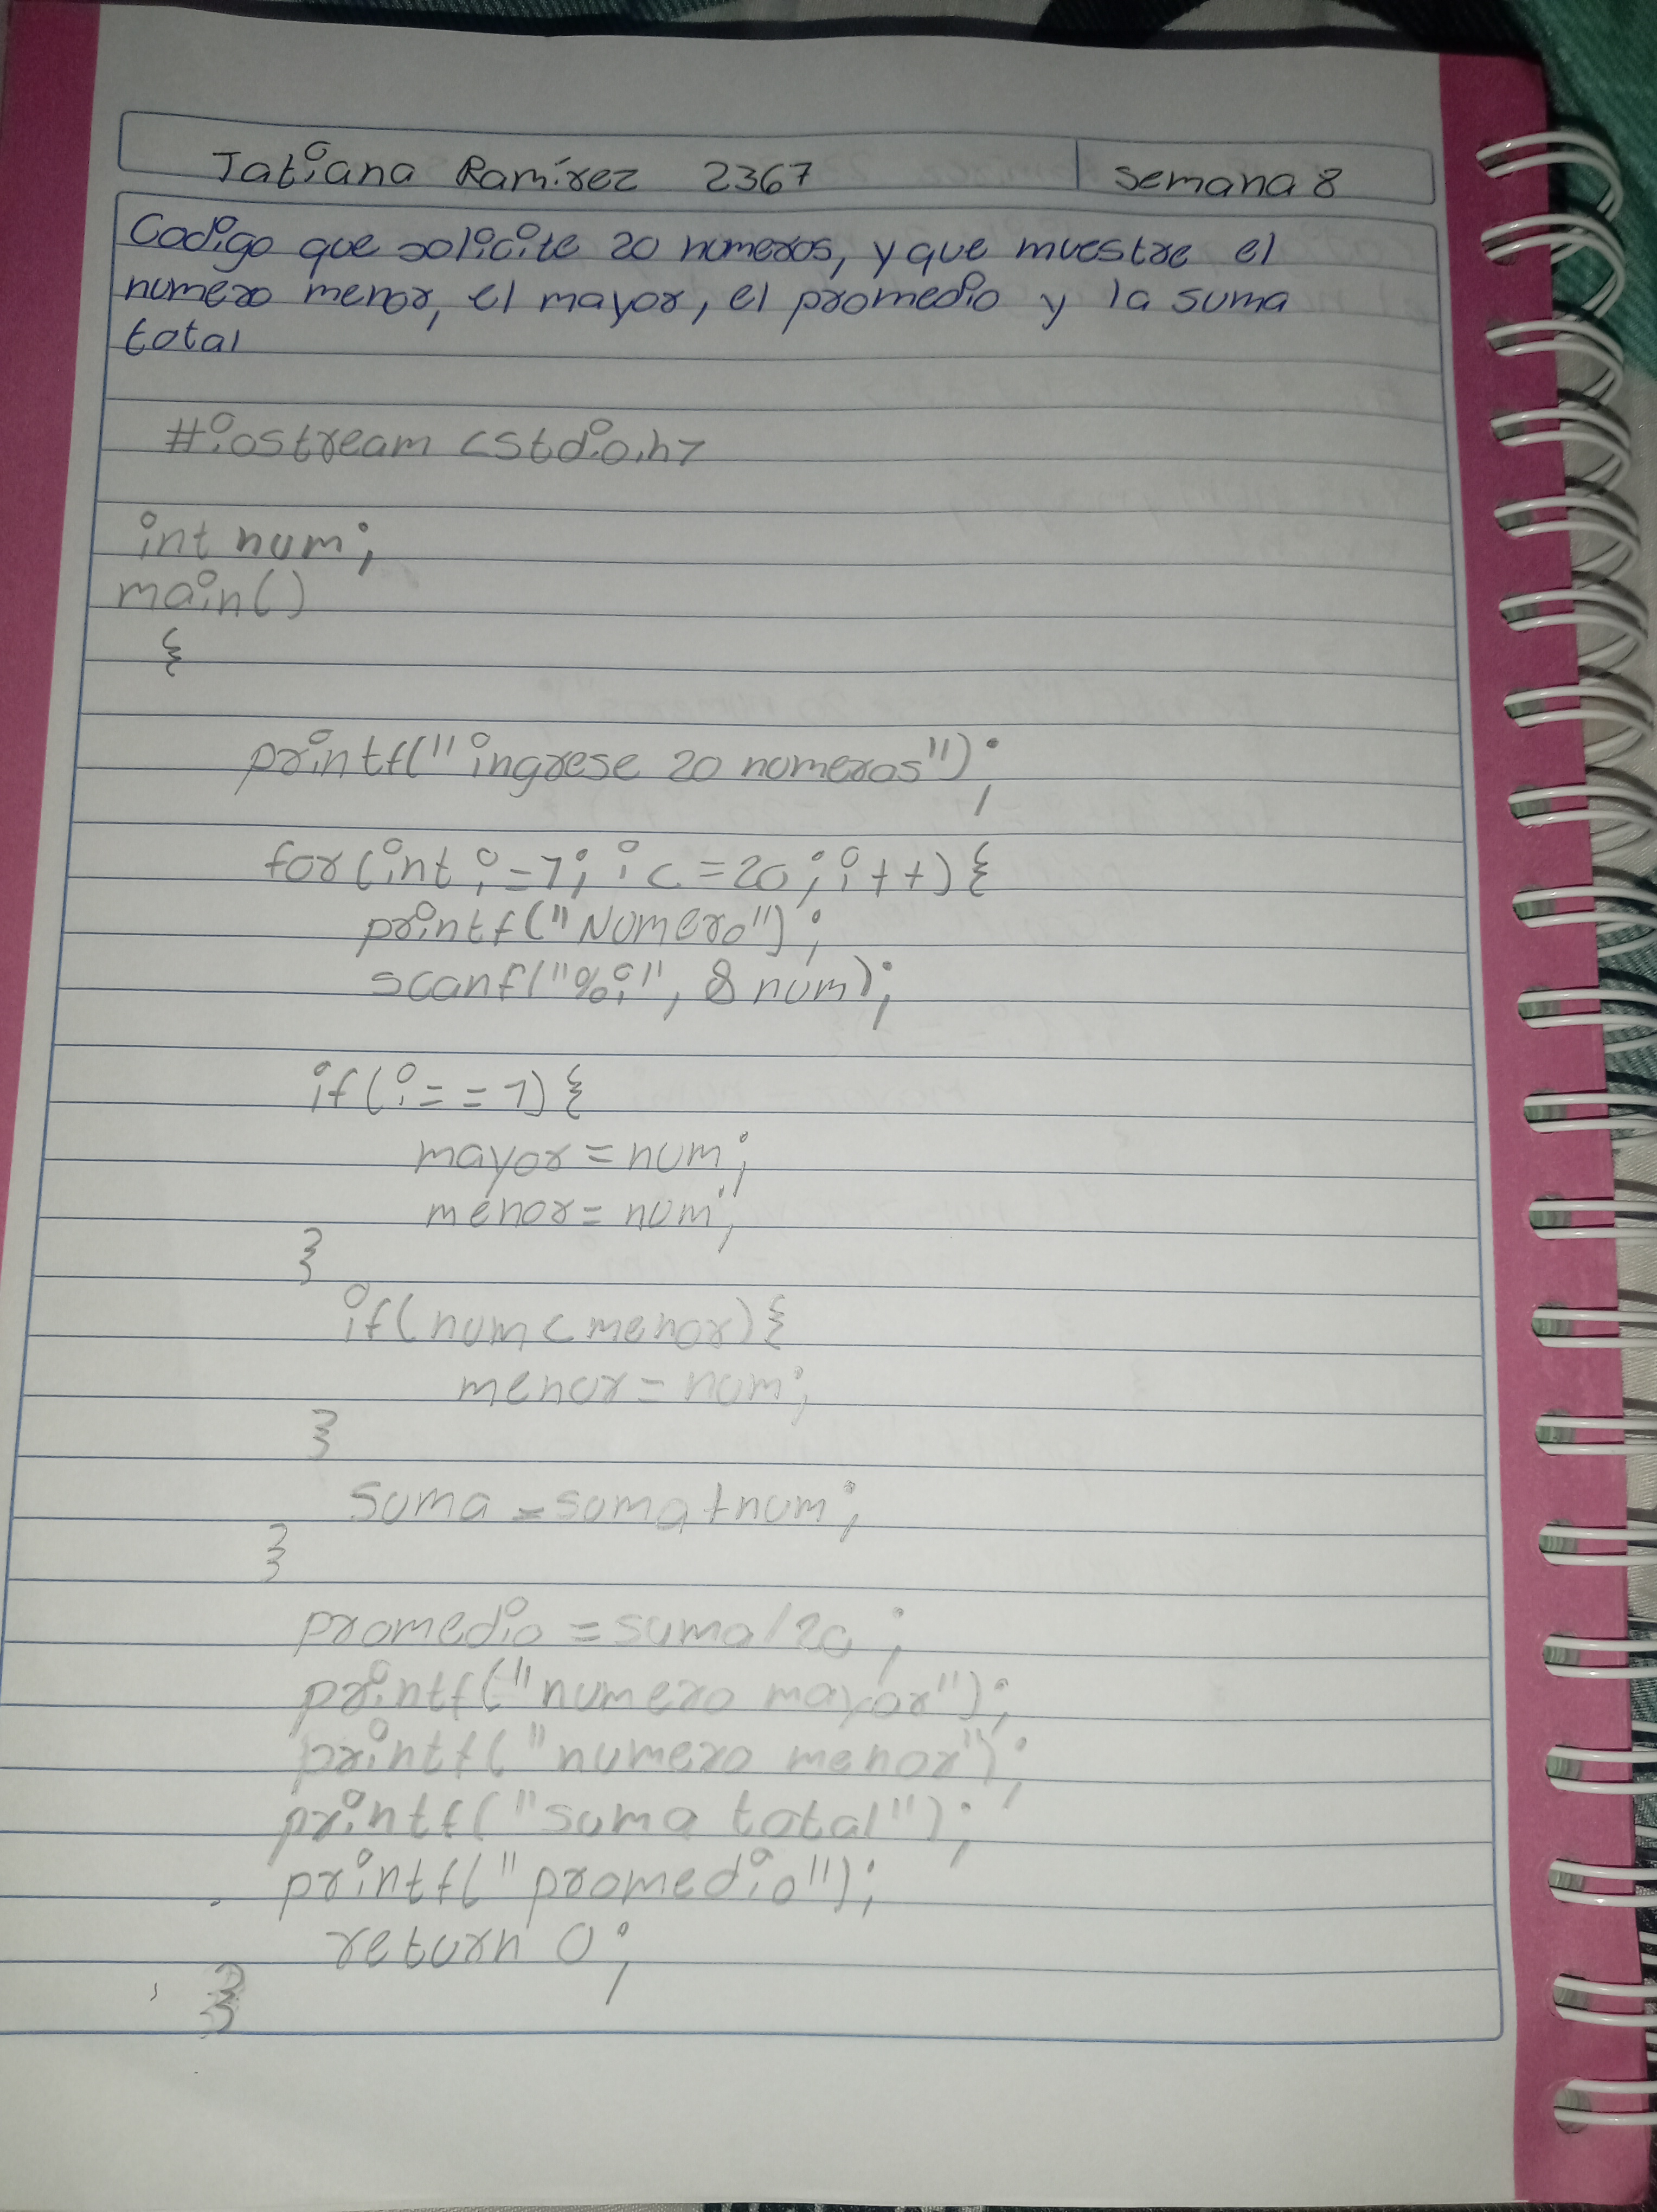 Tatiana Ramírez 2367 Semana 8
Codigo que solicite 20 numeros, y que muestre el
numero menor, el mayor, el promedio y la suma
total
#iostream <stdio.h>
int num;
main()
{
printf("ingrese 20 numeros");
for(int i=1; i<=20; i++){
printf("Numero");
scanf("%i", &num);
if(i==1){
mayor=num;
menor=num;
}
if(num<menor){
menor=num;
}
suma=suma+num;
}
promedio=suma/20;
printf("numero mayor");
printf("numero menor");
printf("suma total");
printf("promedio");
return 0;
}